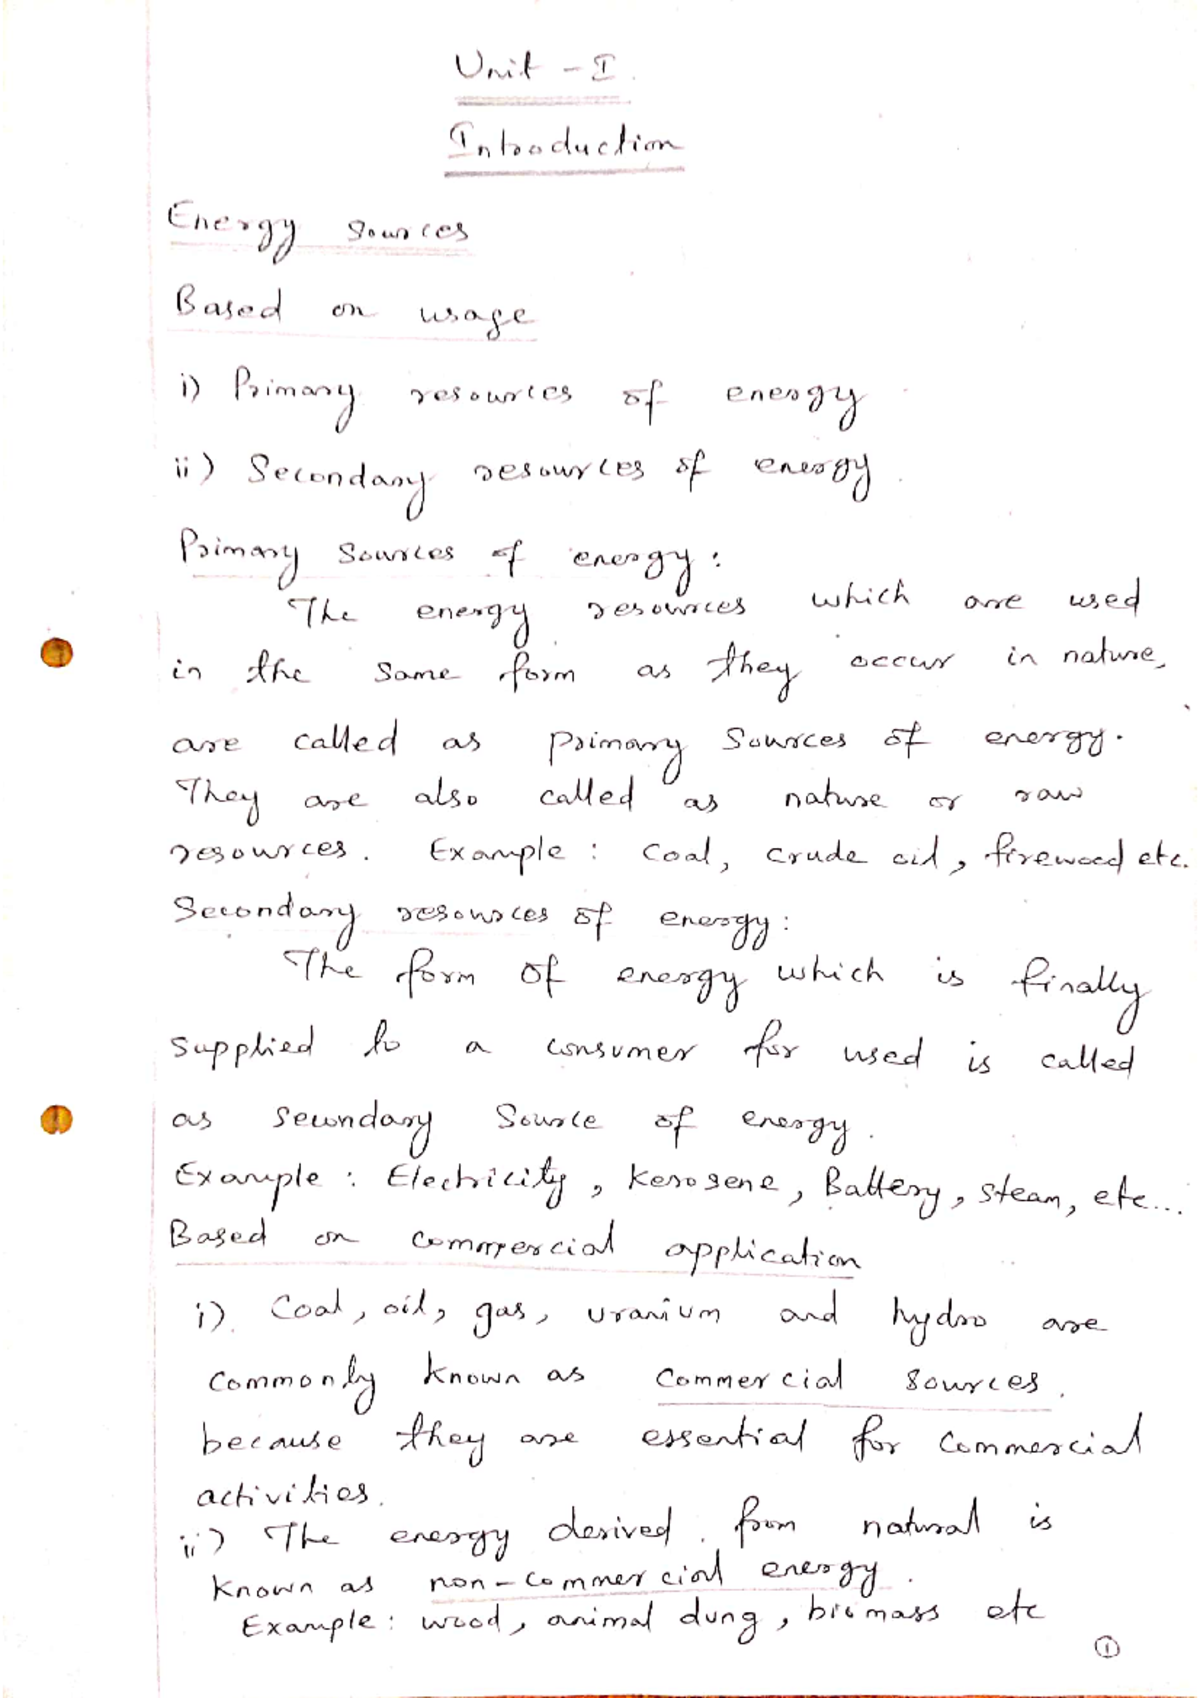 Unit - I.
Introduction
Energy sources
Based on usage
i) Primary resources of energy
ii) Secondary resources of energy.
Primary sources of energy:
The energy resources which are used
in the same form as they occur in nature,
are called as primary sources of energy.
They are also called as nature or raw
resources. Example: Coal, crude oil, firewood etc.
Secondary resources of energy:
The form of energy which is finally
supplied to a consumer for used is called
as secondary source of energy.
Example: Electricity, kerosene, Battery, steam, etc...
Based on commercial application
i). Coal, oil, gas, uranium and hydro are
commonly known as commercial sources.
because they are essential for commercial
activities.
ii) The energy derived from natural is
known as non-commercial energy.
Example: wood, animal dung, biomass etc
1